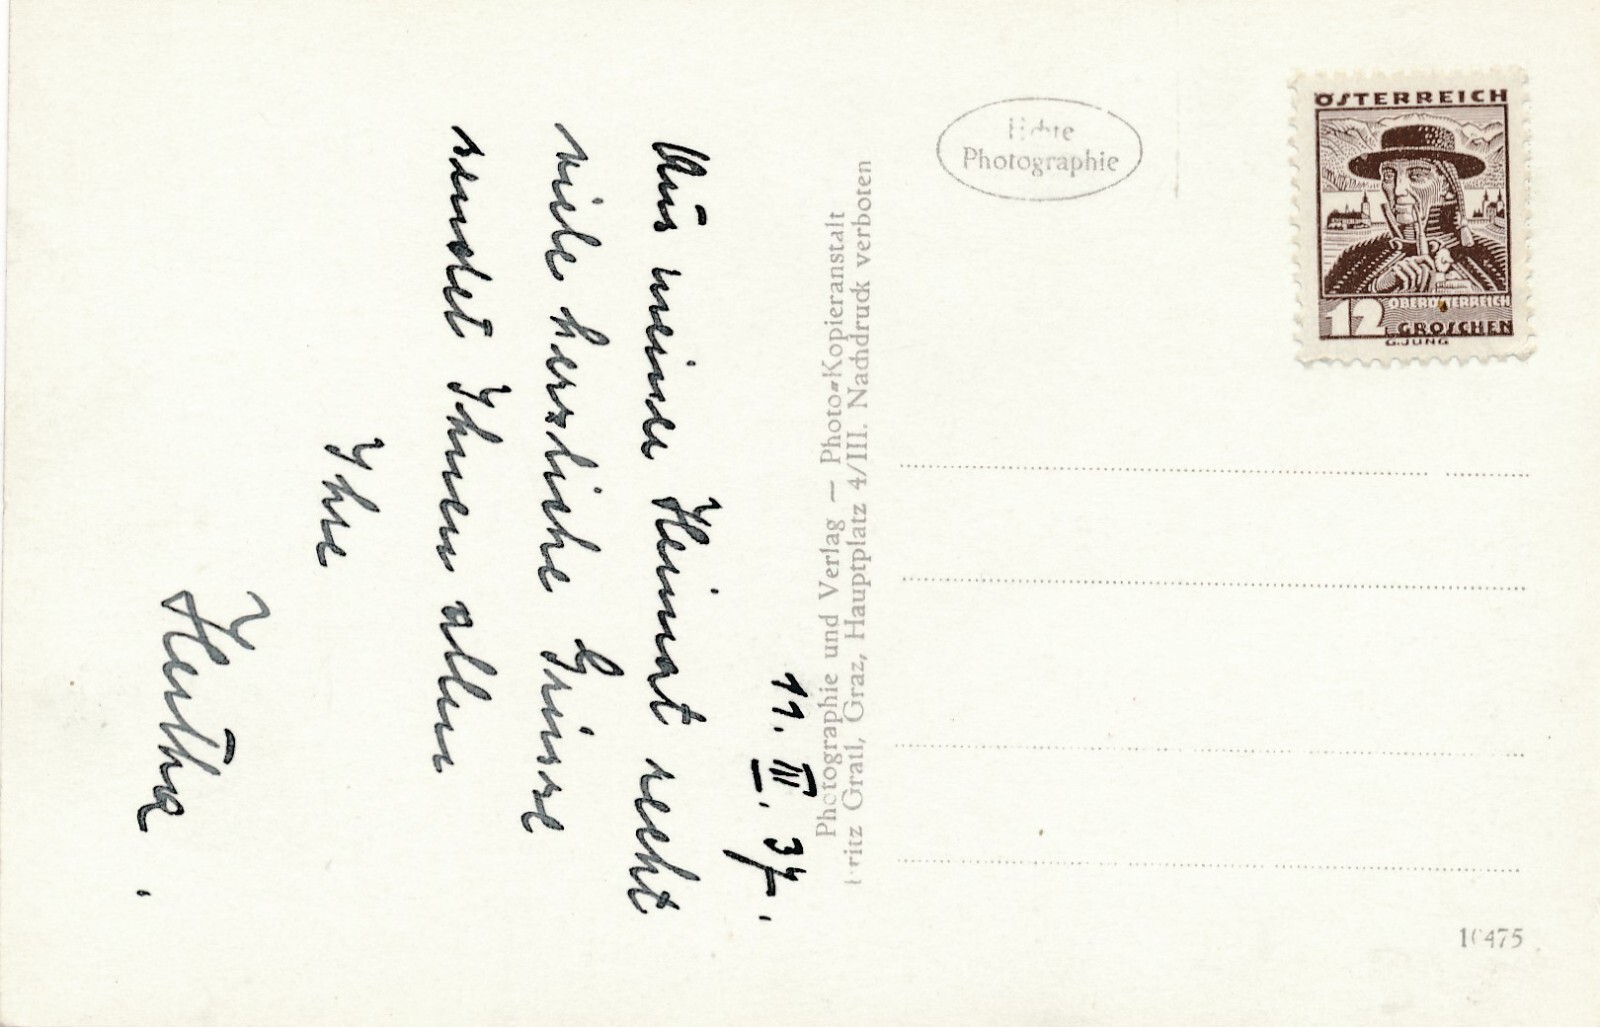 11. III. 37.
Aus meiner Heimat recht
viele herzliche Grüsse
sendet Ihnen allen
Ihre
Hertha.
Photographie und Verlag — Photo-Kopieranstalt
Fritz Gratl, Graz, Hauptplatz 4/III. Nachdruck verboten
Echte
Photographie
ÖSTERREICH
OBERÖSTERREICH
12 GROSCHEN
G. JUNG